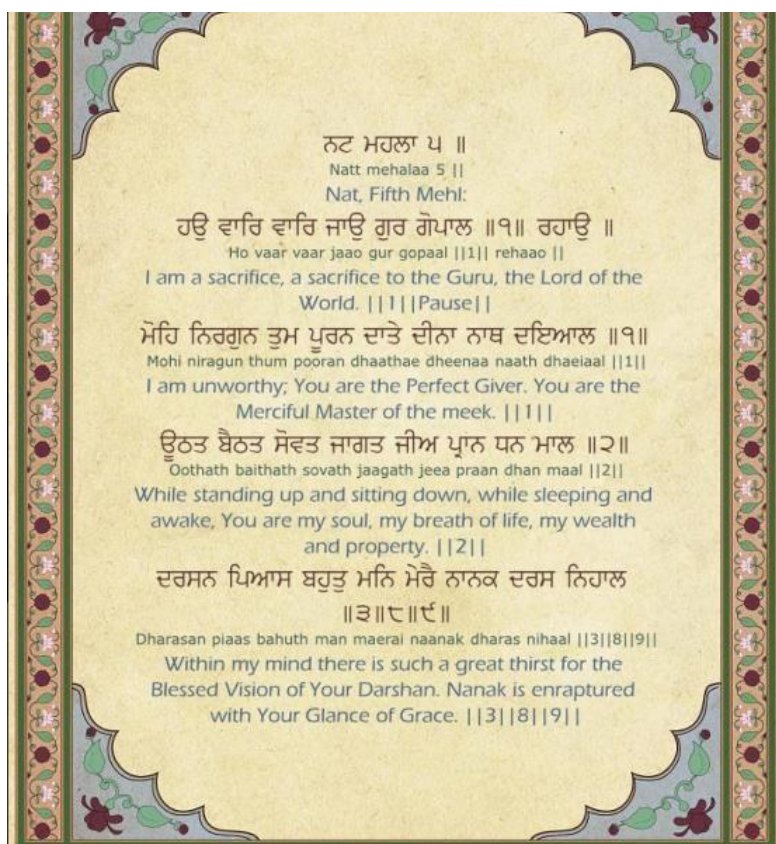 ਨਟ ਮਹਲਾ ੫ ॥
Natt mehalaa 5 ||
Nat, Fifth Mehl:
ਹਉ ਵਾਰਿ ਵਾਰਿ ਜਾਉ ਗੁਰ ਗੋਪਾਲ ॥੧॥ ਰਹਾਉ ॥
Ho vaar vaar jaao gur gopaal ||1|| rehaao ||
I am a sacrifice, a sacrifice to the Guru, the Lord of the
World. ||1||Pause||
ਮੋਹਿ ਨਿਰਗੁਨ ਤੁਮ ਪੂਰਨ ਦਾਤੇ ਦੀਨਾ ਨਾਥ ਦਇਆਲ ॥੧॥
Mohi niragun thum pooran dhaathae dheenaa naath dhaeiaal ||1||
I am unworthy; You are the Perfect Giver. You are the
Merciful Master of the meek. ||1||
ਊਠਤ ਬੈਠਤ ਸੋਵਤ ਜਾਗਤ ਜੀਅ ਪ੍ਰਾਨ ਧਨ ਮਾਲ ॥੨॥
Oothath baithath sovath jaagath jeea praan dhan maal ||2||
While standing up and sitting down, while sleeping and
awake, You are my soul, my breath of life, my wealth
and property. ||2||
ਦਰਸਨ ਪਿਆਸ ਬਹੁਤੁ ਮਨਿ ਮੇਰੈ ਨਾਨਕ ਦਰਸ ਨਿਹਾਲ
॥੩॥੮॥੯॥
Dharasan piaas bahuth man maerai naanak dharas nihaal ||3||8||9||
Within my mind there is such a great thirst for the
Blessed Vision of Your Darshan. Nanak is enraptured
with Your Glance of Grace. ||3||8||9||